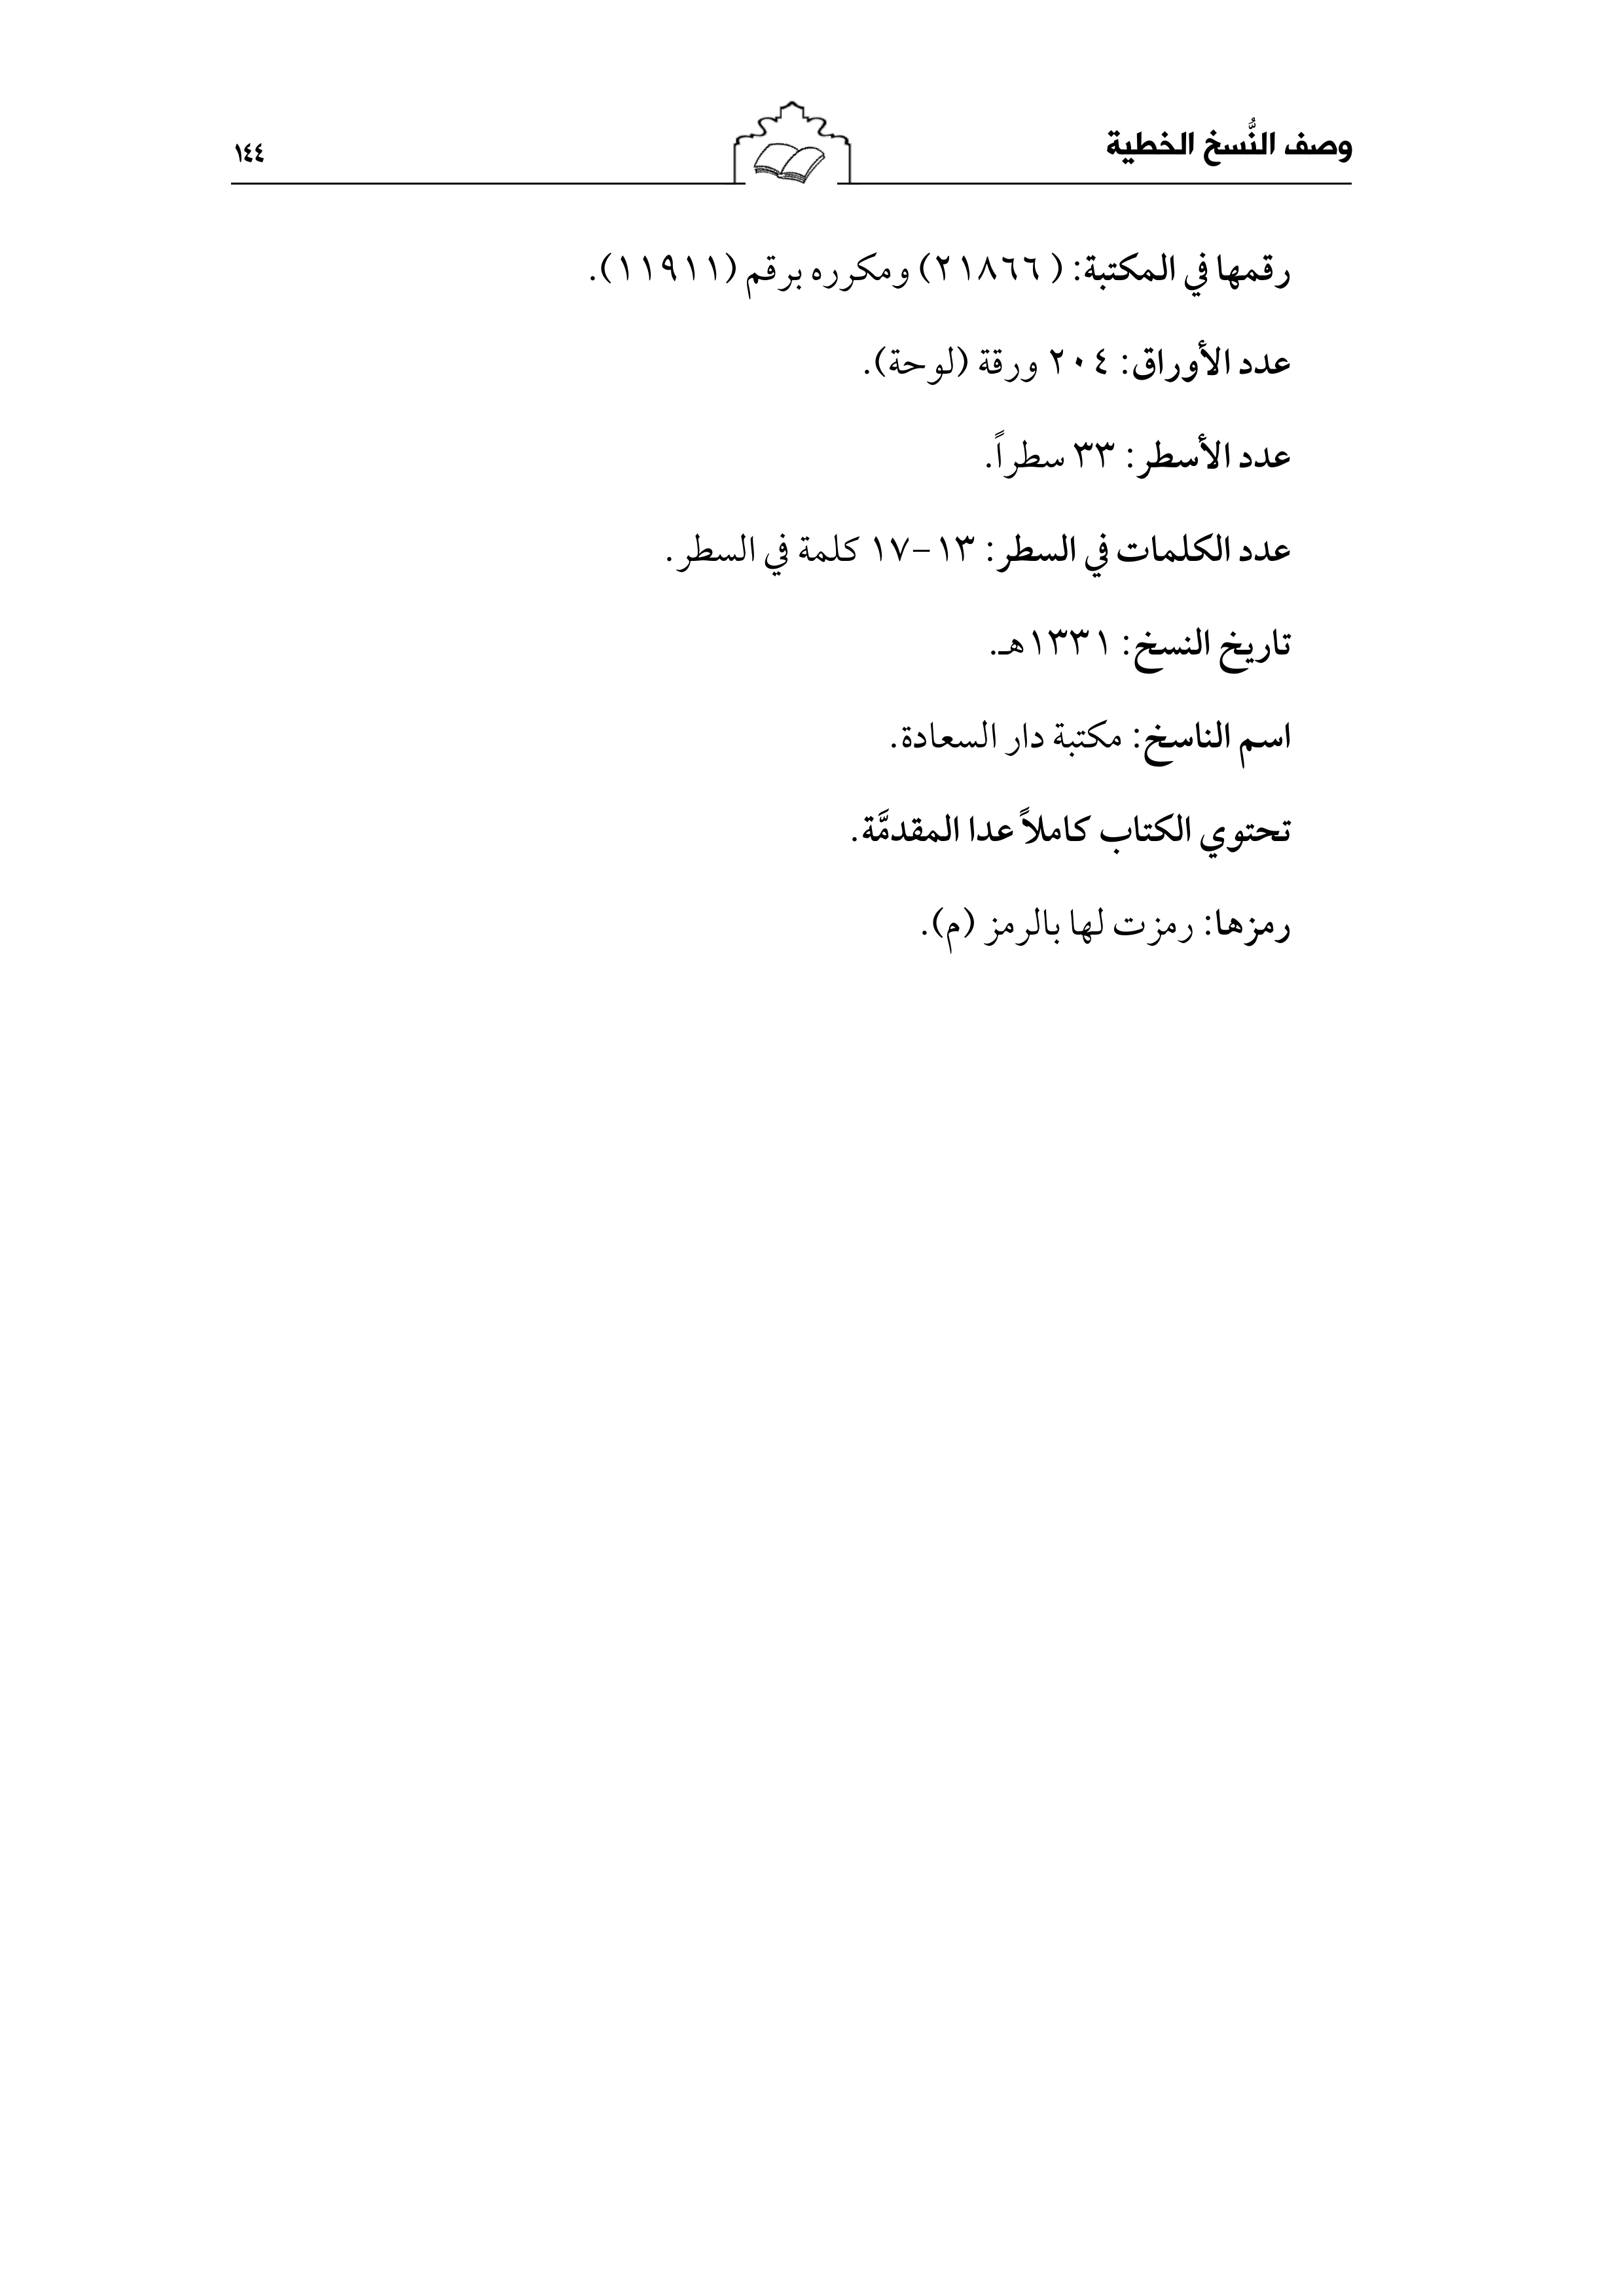 وصف النُّسخ الخطية
١٤٤
رقمها في المكتبة: ( ٢١٨٦٦) ومكرره برقم (١١٩١١).
عدد الأوراق: ٢٠٤ ورقة (لوحة).
عدد الأسطر: ٣٣ سطراً.
عدد الكلمات في السطر: ١٣-١٧ كلمة في السطر.
تاريخ النسخ: ١٣٣١هـ.
اسم الناسخ: مكتبة دار السعادة.
تحتوي الكتاب كاملاً عدا المقدمَّة.
رمزها: رمزت لها بالرمز (م).